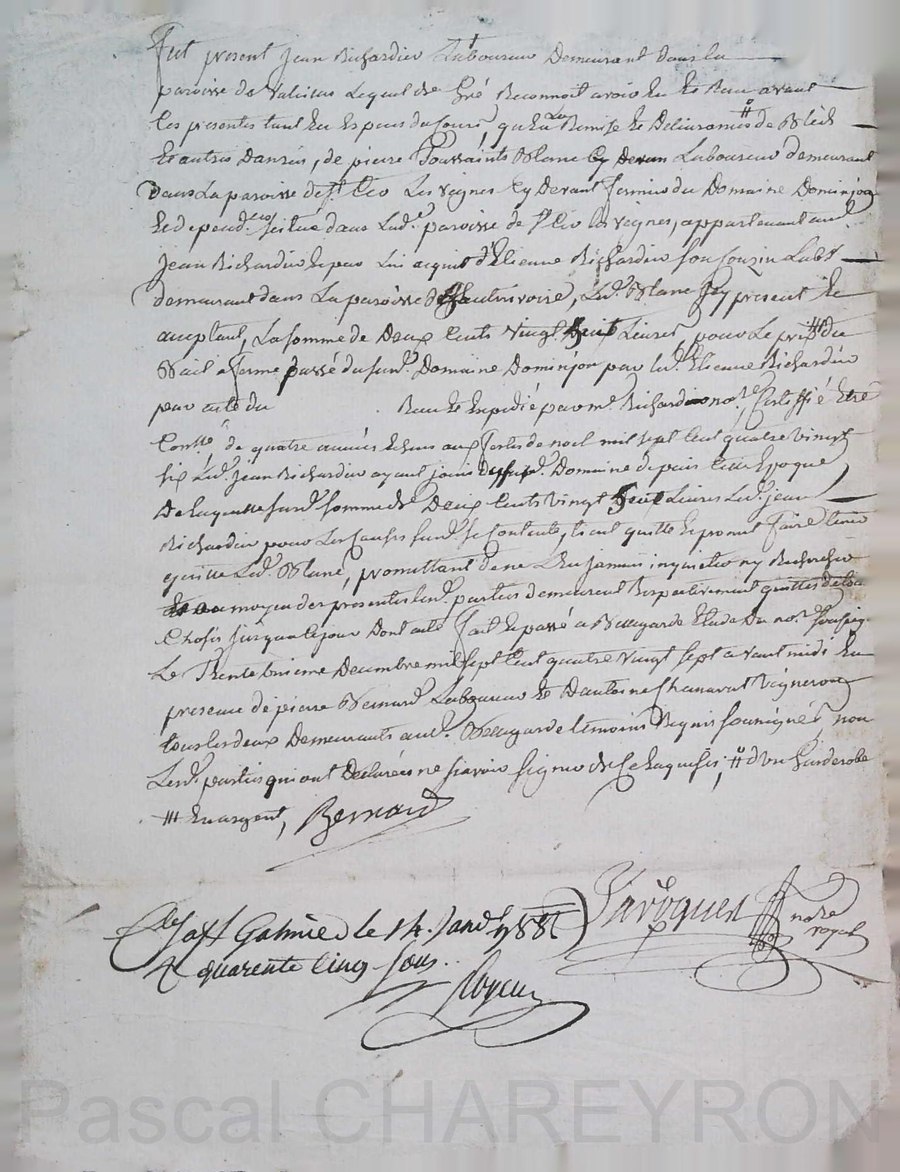 Fut present Jean Richardier Laboureur Demeurant dans la
paroisse de Valeilles Lequel de Gré Reconnoit avoir Eu et Reçu avant
Ces presentes tant En Especes du Cours, qu'En La Remise Et Délivrance # de Bled
Et autres Danrées, de pierre Toussaints Blanc Cy Devan Laboureur demeurant
Dans La paroisse de St. Cir Les vignes Cy Devant fermier du Domaine Dominjon
Et depend.ces situé dans Lad.e paroisse de St Cir les vignes, appartenant aud.
Jean Richardier Et par Lui acquis d'Etienne Richardier son Cousin Lab.r
demeurant dans La paroisse de Hauterivoire, Led. Blanc Icy present Et
acceptant, La somme de Deux Cents vingt huit Livres, pour Le prix ### du
Bail a ferme passé du susd. Domaine Dominjon par led. Etienne Richardier
par acte du Reçu Et Expédié par me. Richardier no.re Certiffié Etre
Con.llé, de quatre années Echues aux fetes de noel mil sept Cent quatre vingt
six Led. Jean Richardier ayant joui Dud. Domaine depuis Cette Epoque
De laquelle susd. somme de Deux Cents vingt huit Livres Led. jean
Richardier pour Les Causes susd. se Contente, l'en quitte Et promet faire tenir
quitte Led. Blanc, promettant de ne L'En jamais inquietter ny Rechercher
au moyen des presentes Lesd. parties demeurent Respectivement quittes de toutes
Choses jusqu'a Ce jour Dont acte fait Et passé a Bellegarde Etude Du no.re soussig.
Le Trente unieme Decembre mil sept Cent quatre vingt sept avant midi En
presence de pierre Bernard Laboureur Et D'antoine Chanavat Vigneron
tous les deux Demeurants aud. Bellegarde temoins Requis soussignés, non
Lesd. parties qui ont Declarées ne sçavoir signer de Ce Enquises, # d'un garderobe
### En argent, Bernard
notre
royal
a St Galmier le 14 Janv. 1788
R quarente Cinq sous
Pascal CHAREYRON